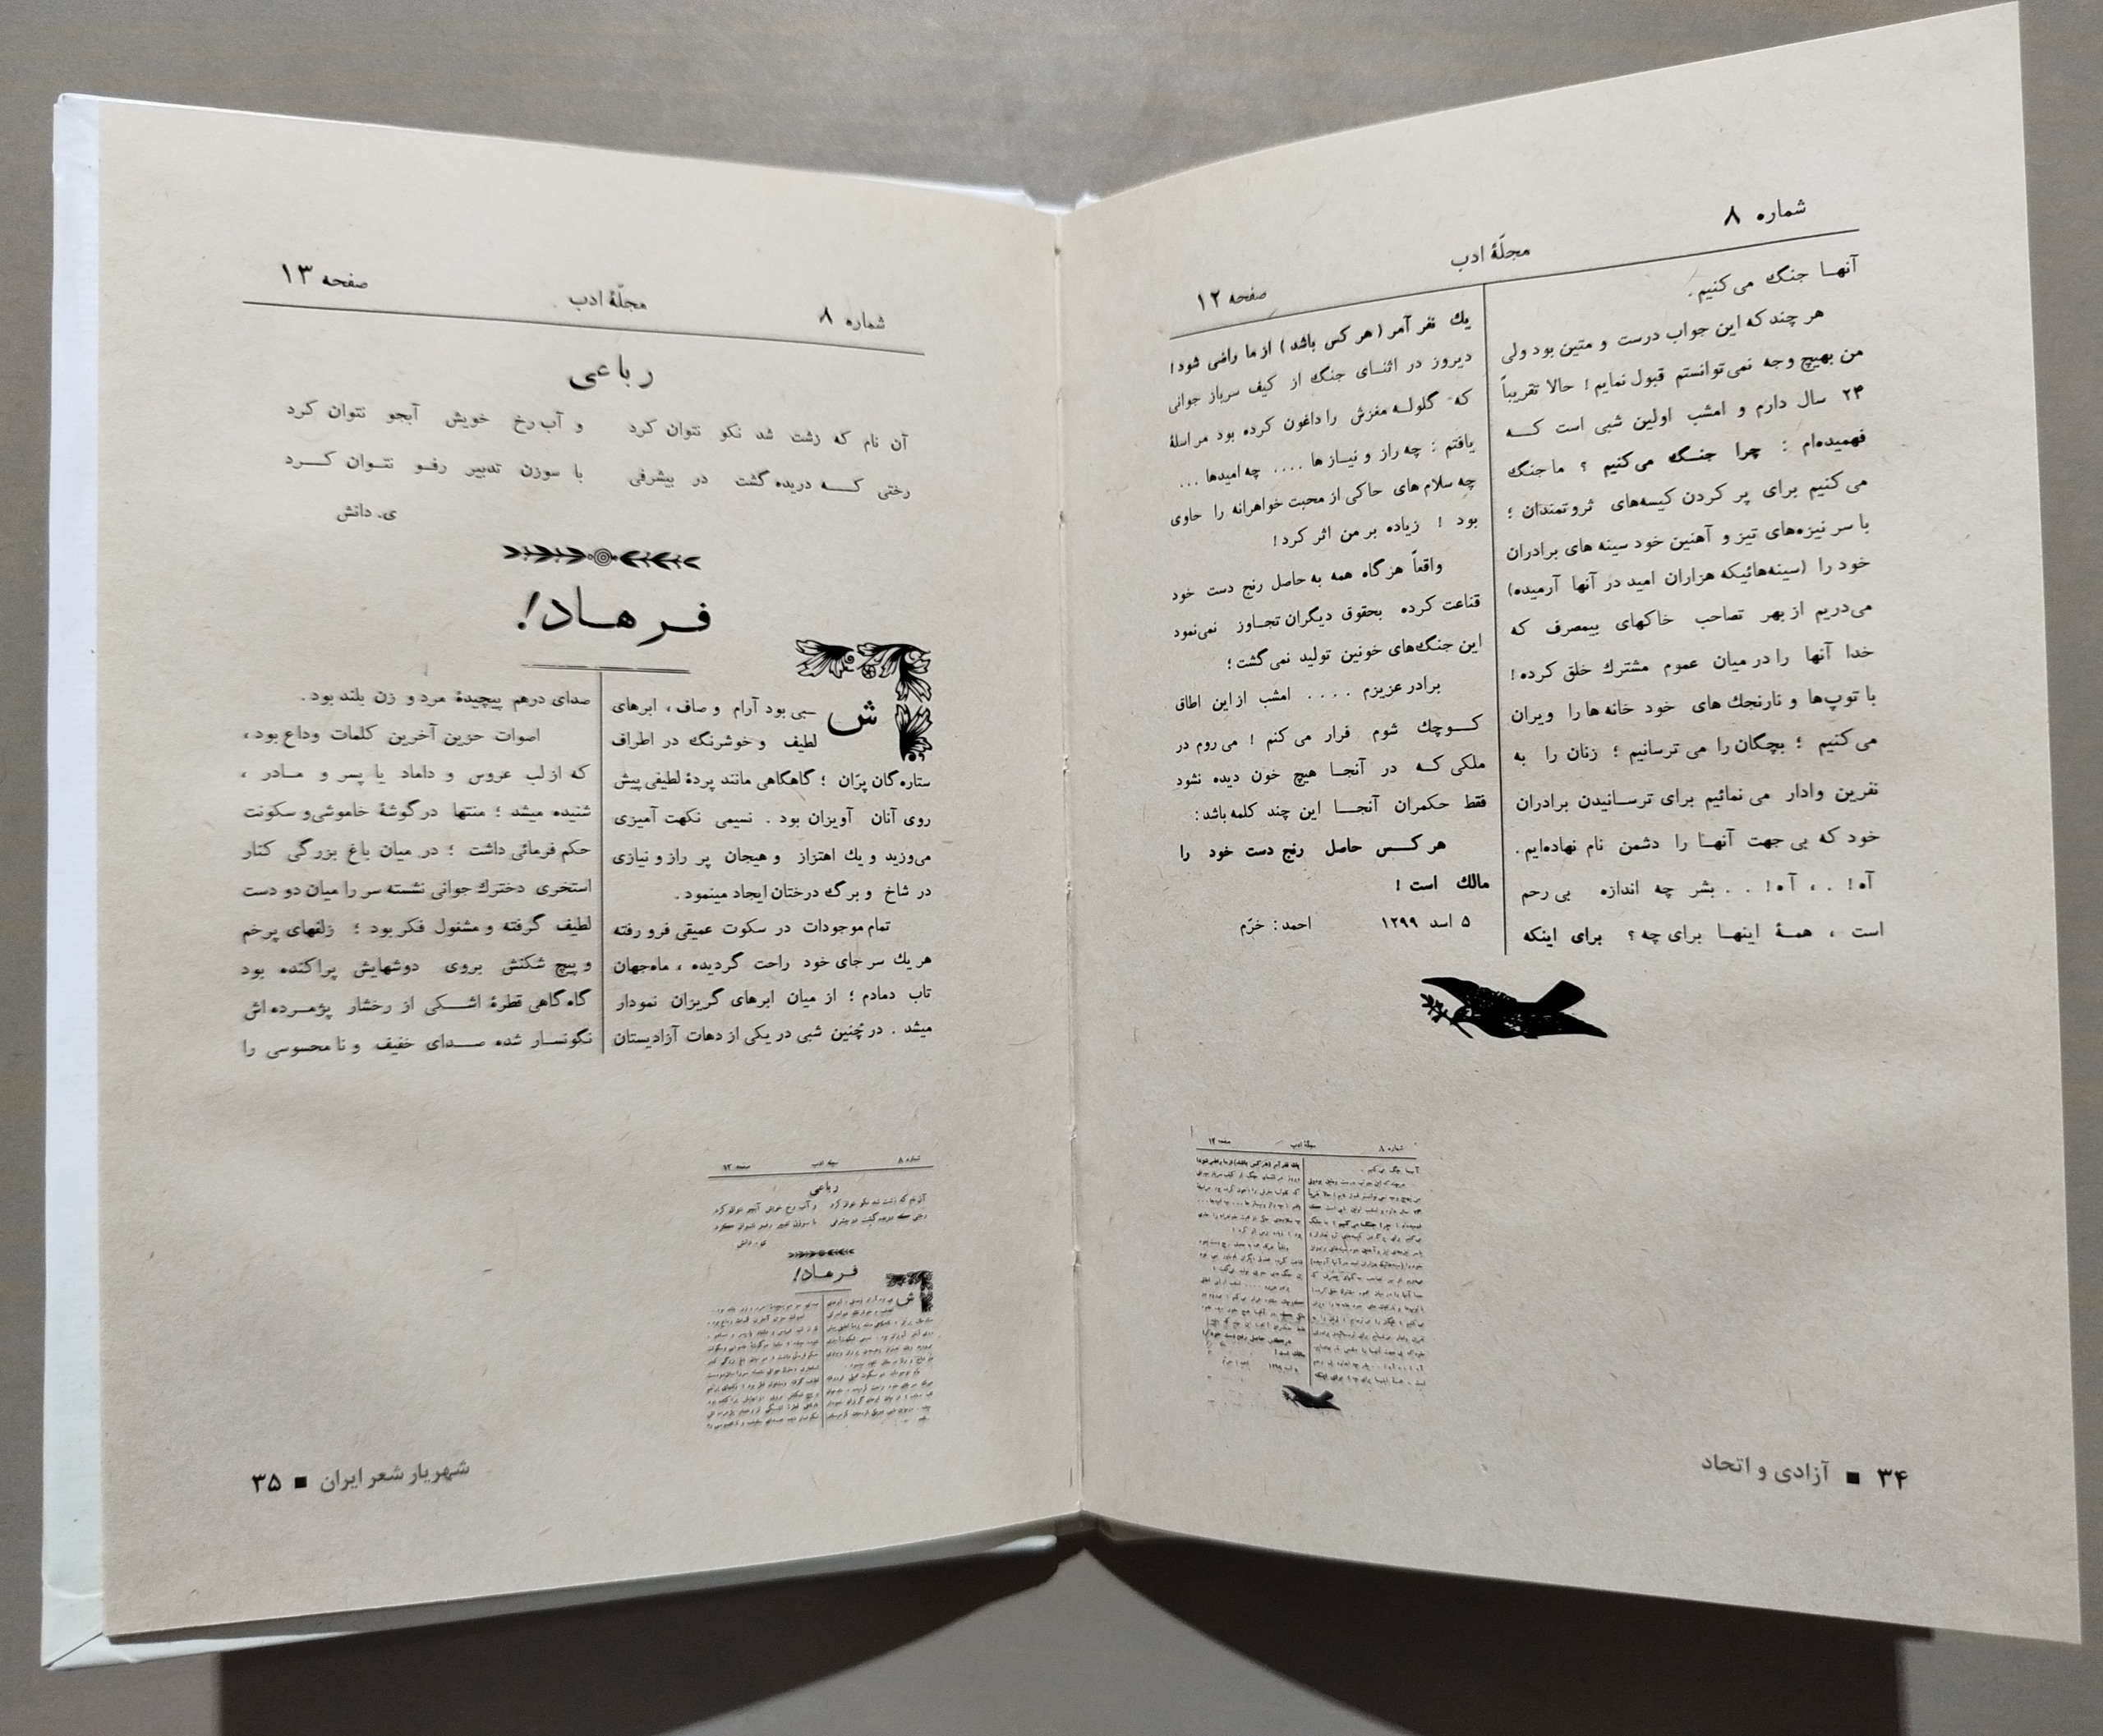 شماره ۸
مجلّهٔ ادب
صفحه ۱۲
آنهـا جنگ می‌کنیم.
هر چند که این جواب درست و متین بود ولی
من بهیچ وجه نمی‌توانستم قبول نمایم! حالا تقریباً
۲۴ سال دارم و امشب اولین شبی است کـه
فهمیده‌ام : چرا جنـگ می‌کنیم ؟ ما جنگ
می‌کنیم برای پر کردن کیسه‌های ثروتمندان ؛
با سر نیزه‌های تیز و آهنین خود سینه های برادران
خود را (سینه‌هائیکه هزاران امید در آنها آرمیده)
می‌دریم از بهر تصاحب خاکهای بیمصرف که
خدا آنها را در میان عموم مشترك خلق کرده !
با توپ‌ها و نارنجك های خود خانه ها را ویران
می‌کنیم ؛ بچگان را می ترسانیم ؛ زنان را به
نفرین وادار می نمائیم برای ترسـانیدن برادران
خود که بی جهت آنهـا را دشمن نام نهاده‌ایم.
آه! . ، آه! . . بشر چه اندازه بی رحم
است ، همـهٔ اینهـا برای چه ؟ برای اینکه
یك نفر آمر (هر کس باشد) از ما راضی شود!
دیروز در اثنـای جنگ از کیف سرباز جوانی
که گلولـه مغزش را داغون کرده بود مراسلهٔ
یافتم : چه راز و نیـاز ها .... چه امیدها ...
چه سلام های حاکی از محبت خواهرانه را حاوی
بود ! زیاده بر من اثر کرد!
واقعاً هر گاه همه به حاصل رنج دست خود
قناعت کرده بحقوق دیگران تجـاوز نمی‌نمود
این جنگ‌های خونین تولید نمی گشت ؛
برادر عزیزم .... امشب از این اطاق
کـوچك شوم فرار می کنم ! می روم در
ملکی کـه در آنجـا هیچ خون دیده نشود
فقط حکمران آنجـا این چند کلمه باشد :
هر کـس حاصل رنج دست خود را
مالك است !
۵ اسد ۱۲۹۹ احمد : خرّم
۳۴ ■ آزادی و اتحاد
شماره ۸
مجلّهٔ ادب
صفحه ۱۳
رباعی
آن نام که زشت شد نکو نتوان کرد و آب رخ خویش آبجو نتوان کرد
رختی کـه دریده گشت در بیشرفی با سوزن تدبیر رفـو نتـوان کـرد
ی. دانش
فـرهـاد!
شـبی بود آرام و صاف ، ابرهای
لطیف و خوشرنگ در اطراف
ستاره گان پرّان ؛ گاهگاهی مانند پردهٔ لطیفی پیش
روی آنان آویزان بود . نسیمی نکهت آمیزی
می‌وزید و یك اهتزاز و هیجان پر راز و نیازی
در شاخ و برگ درختان ایجاد مینمود.
تمام موجودات در سکوت عمیقی فرو رفته
هر یك سر جای خود راحت گردیده ، ماه جهان
تاب دمادم ؛ از میان ابرهای گریزان نمودار
میشد . در چُنین شبی در یکی از دهات آزادیستان
صدای درهم پیچیدهٔ مرد و زن بلند بود.
اصوات حزین آخرین کلمات وداع بود ،
که از لب عروس و داماد یا پسر و مـادر ،
شنیده میشد ؛ منتها در گوشهٔ خاموشی‌و سکونت
حکم فرمائی داشت ؛ در میان باغ بزرگی کنار
استخری دخترك جوانی نشسته سر را میان دو دست
لطیف گرفته و مشغول فکر بود ؛ زلفهای پرخم
و پیچ شکنش بروی دوشهایش پراکنده بود
گاه گاهی قطرهٔ اشـکی از رخشار پژمـرده اش
نگونسـار شده صـدای خفیف و نا محسوسی را
شهریار شعر ایران ■ ۳۵